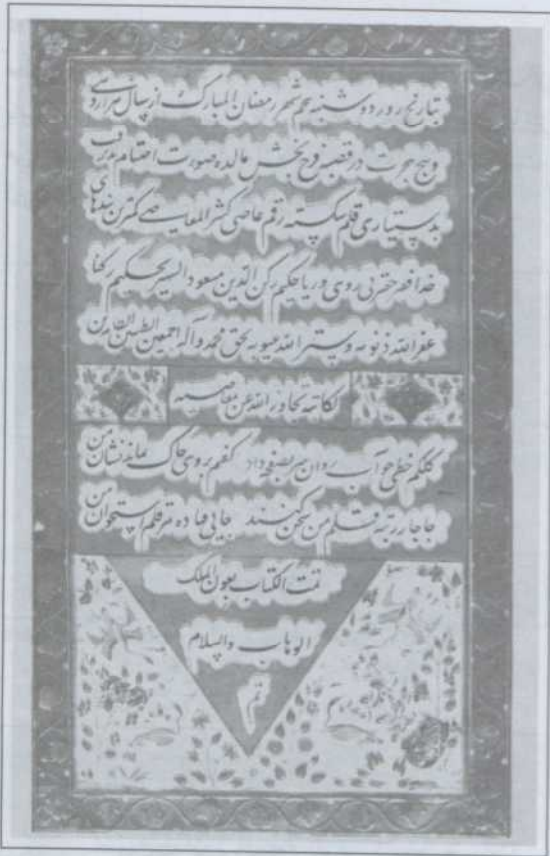 بتاریخ روز دوشنبه پنجم شهر رمضان المبارک از سال هزار و سی
و پنج هجرت در قصبه فرح بخش مالده صورت اختتام
بدستیاری قلم شکسته رقم عاصی کثیر المعاصی کمترین بندهای
خدا فقیر حقیر بی روی و ریا حکیم رکن الدین مسعود الشهیر بحکیم رکنا
غفر الله ذنوبه و ستر الله عیوبه بحق محمد وآله اجمعین الطیبین الطاهرین
لکاتبه تجاوز الله عن معاصیه
کلکم خطی چو آب روان بر صفحه داد گفتم بروی خاک ماند نشان من
جا جا رتبه قلم من کنند جایی فتاده تر قلم استخوان من
تمت الکتاب بعون الملک
الوهاب والسلام
تم